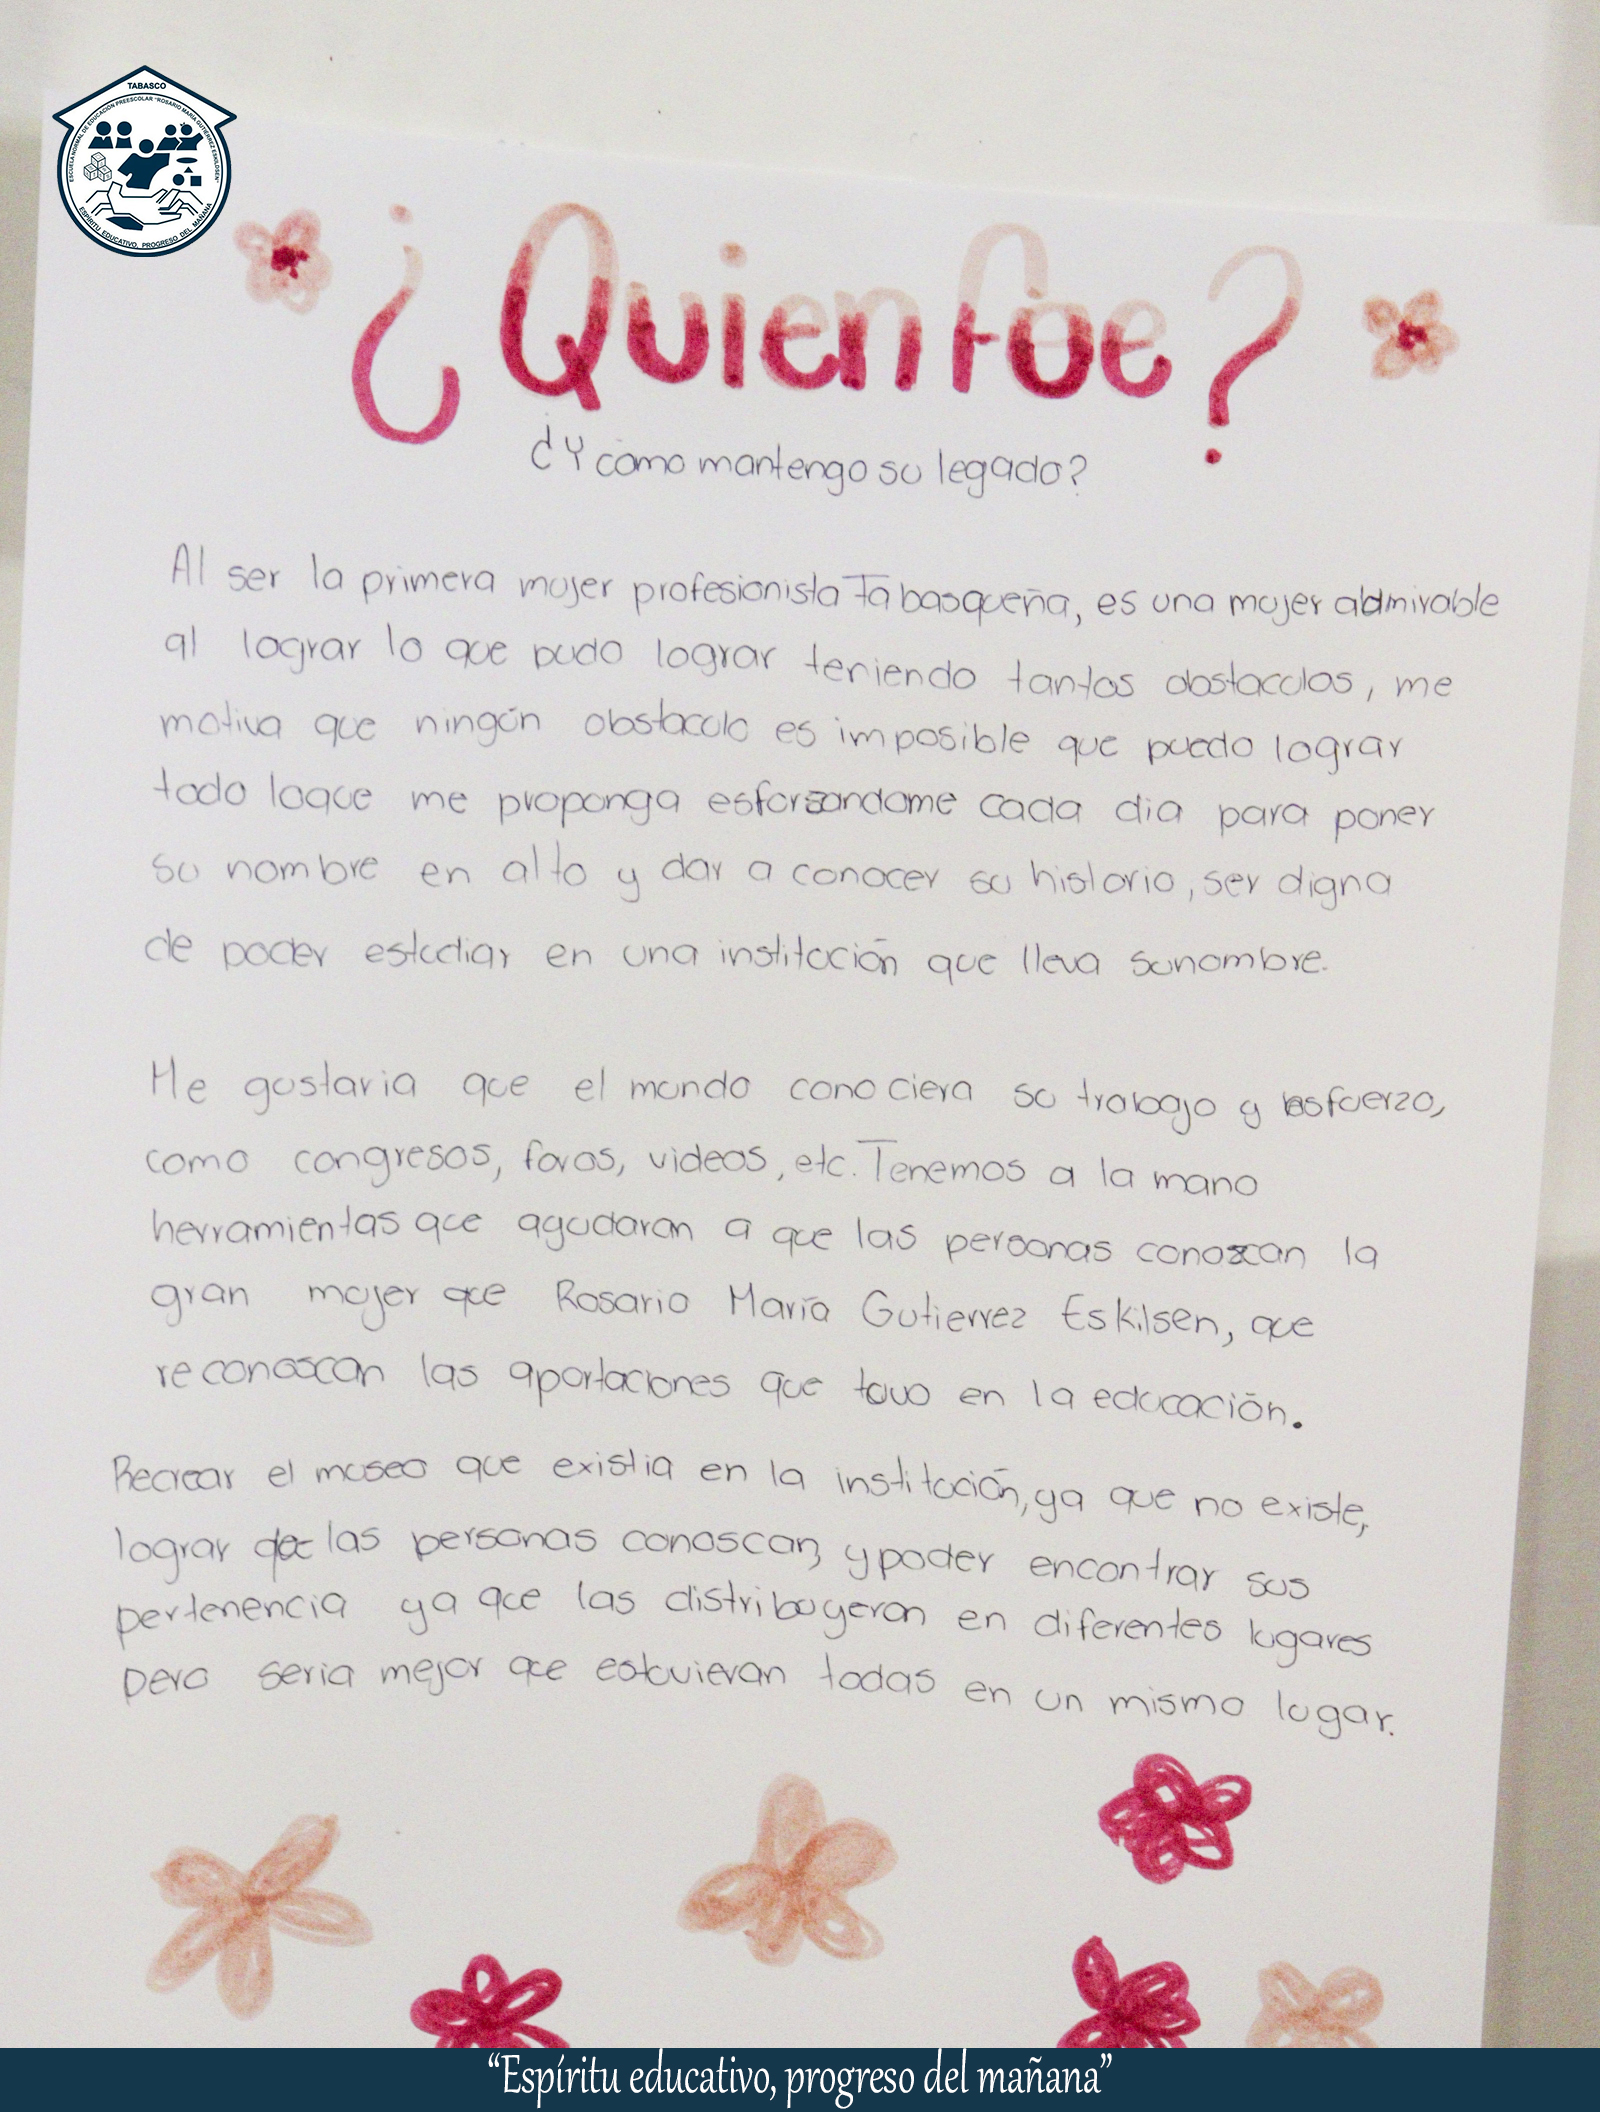 TABASCO
ESCUELA NORMAL DE EDUCACIÓN PREESCOLAR "ROSARIO MARÍA GUTIÉRREZ ESKILDSEN"
ESPÍRITU EDUCATIVO, PROGRESO DEL MAÑANA
¿Quien fue?
¿Y como mantengo su legado?
Al ser la primera mujer profesionista Tabasqueña, es una mujer admirable
al lograr lo que pudo lograr teniendo tantos obstaculos, me
motiva que ningún obstaculo es imposible que puedo lograr
todo loque me proponga esforzandome cada dia para poner
su nombre en alto y dar a conocer su historio, ser digna
de poder estudiar en una institución que lleva sunombre.
Me gustaria que el mundo conociera su trabajo y esfuerzo,
como congresos, foros, videos, etc. Tenemos a la mano
herramientas que ayudaran a que las personas conozcan la
gran mujer que Rosario María Gutierrez Eskilsen, que
reconoscan las aportaciones que tuvo en la educación.
Recrear el museo que existia en la institución, ya que no existe,
lograr que las personas conoscan, y poder encontrar sus
pertenencia ya que las distribuyeron en diferentes lugares
pero seria mejor que estuvieran todas en un mismo lugar.
“Espíritu educativo, progreso del mañana”